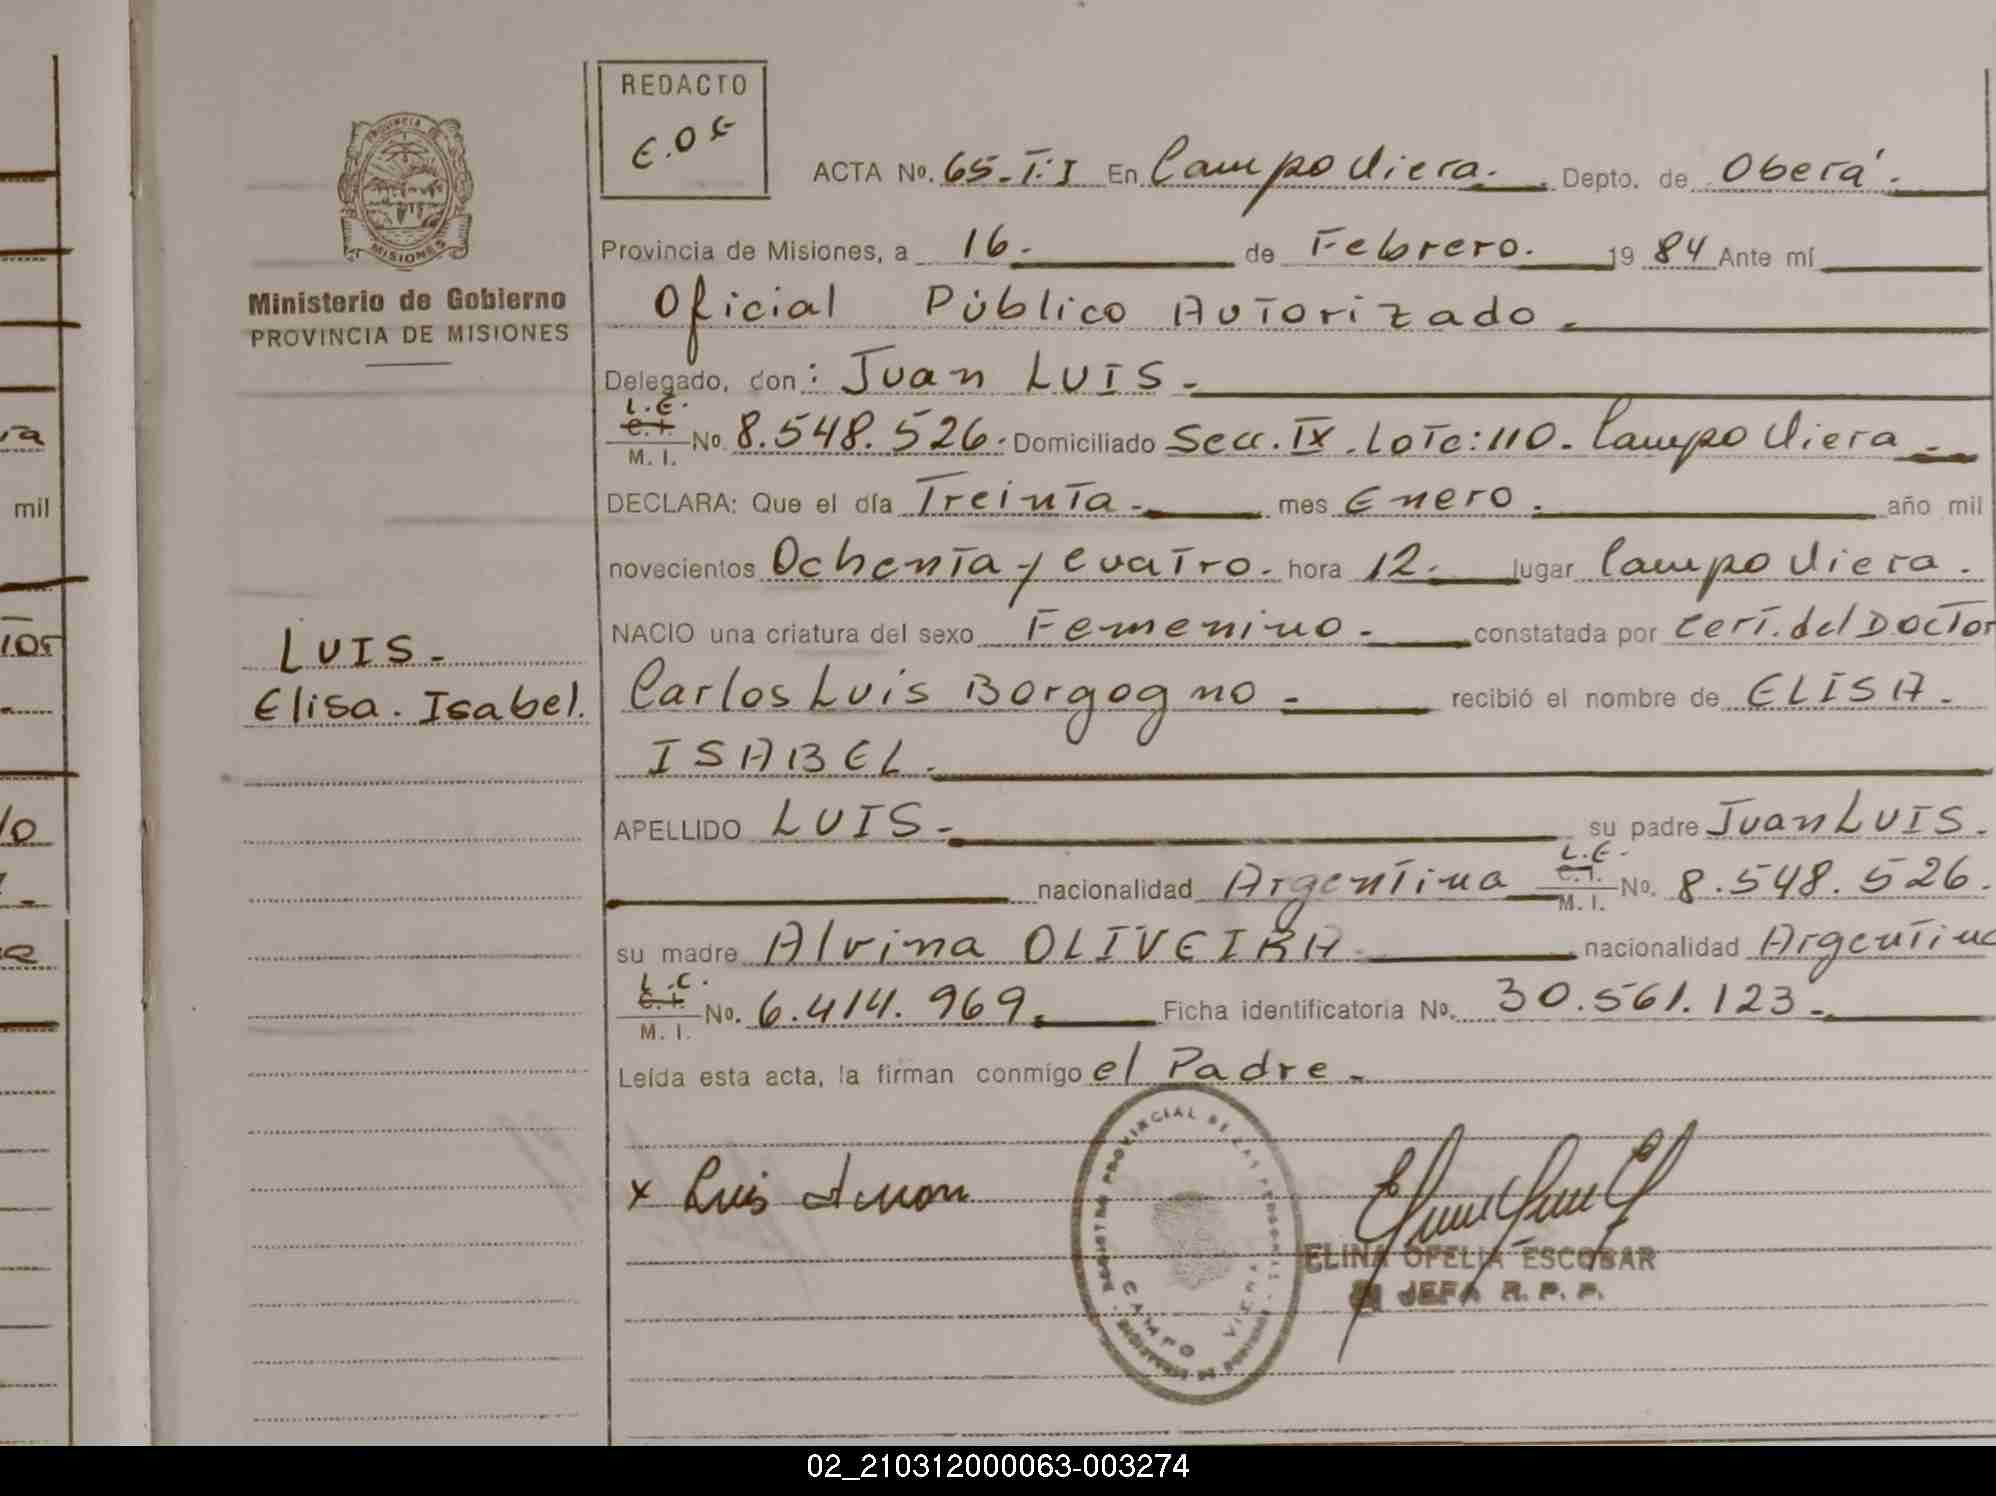 REDACTO
E.O.E
PROVINCIA DE
MISIONES
Ministerio de Gobierno
PROVINCIA DE MISIONES
LUIS.
Elisa. Isabel.
ACTA No. 65-T:I En Campo Viera. Depto. de Oberá.
Provincia de Misiones, a 16. de Febrero. 19 84 Ante mí
Oficial Público Autorizado.
Delegado, don: Juan LUIS.
L.E.
C. I.
M. I.
No. 8.548.526. Domiciliado Secc. IX. Lote: 110. Campo Viera
DECLARA: Que el día Treinta. mes Enero. año mil
novecientos Ochenta y cuatro. hora 12. lugar Campo Viera.
NACIO una criatura del sexo Femenino. constatada por Cert. del Doctor
Carlos Luis Borgogno. recibió el nombre de ELISA.
ISABEL.
APELLIDO LUIS. su padre Juan LUIS.
nacionalidad Argentina
L.E.
C. I.
M. I.
No. 8.548.526.
su madre Alvina OLIVEIRA. nacionalidad Argentina
L.C.
C. I.
M. I.
No. 6.414.969. Ficha identificatoria No. 30.561.123.
Leída esta acta, la firman conmigo el Padre.
x Luis Juan
REGISTRO PROVINCIAL DE LAS PERSONAS
CAMPO VIERA
ELINA OFELIA ESCOBAR
JEFA R. P. P.
mil
02_210312000063-003274